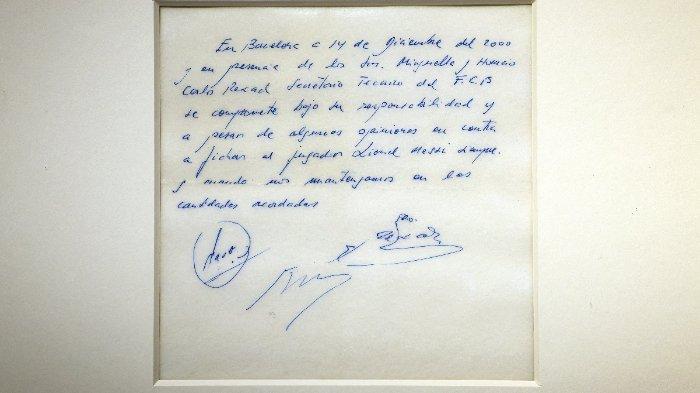 En Barcelona a 14 de Diciembre del 2000
y en presencia de los Srs. Minguella y Horacio
Carlo Rexach Secretario Tecnico del F.C.B
se compromete bajo su responsabilidad y
a pesar de algunas opiniones en contra
a fichar al jugador Lionel Messi siempre.
y cuando nos mantengamos en las
cantidades acordadas